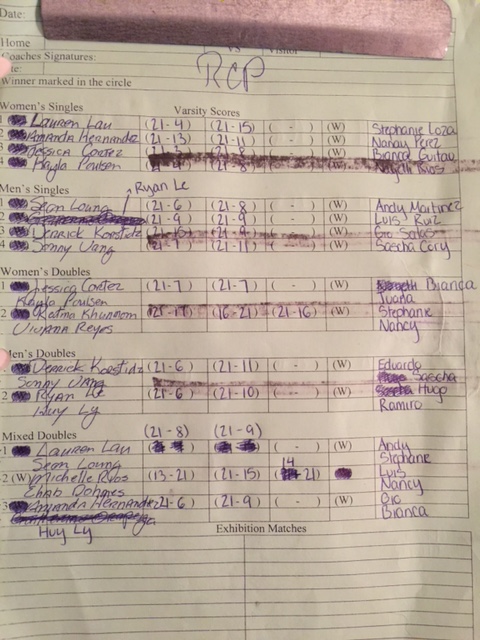 Date:
Home Visitor
Coaches Signatures:
RCP
Winner marked in the circle
Women's Singles Varsity Scores
1 Lauren Lau (21-4) (21-15) ( - ) (W) Stephanie Loza
2 Amanda Hernandez (21-13) (21-11) ( - ) (W) Nancy Perez
3 Jessica Cortez ( - ) (W) Bianca
4 Kayla Poulsen ( - ) (W)
Ryan Le
Men's Singles
1 Sean Loung (21-6) (21-8) ( - ) (W) Andy Martinez
2 (21-9) (21-9) ( - ) (W) Luis Ruiz
3 Derrick (21-9) ( - ) (W) Gio Salas
4 Sonny Vang (21-7) (21-11) ( - ) (W) Sascha Cory
Women's Doubles
1 Jessica Cortez (21-7) (21-7) ( - ) (W) Bianca
Kayla Poulsen Juana
2 Katina (21-17) (16-21) (21-16) (W) Stephanie
Viviana Reyes Nancy
Men's Doubles
Derrick (21-6) (21-11) ( - ) (W) Eduardo
Sonny Vang Sascha
2 Ryan Le (21-6) (21-10) ( - ) (W) Hugo
Huy Ly Ramiro
(21-8) (21-9)
Mixed Doubles
1 Lauren Lau ( - ) (W) Andy
Sean Loung Stephanie
14
2 (W) Michelle Rios (13-21) (21-15) ( 21) Luis
Ehab Nancy
3 Amanda Hernandez 21-6) (21-9) ( - ) (W) Gio
Bianca
Huy Ly
Exhibition Matches